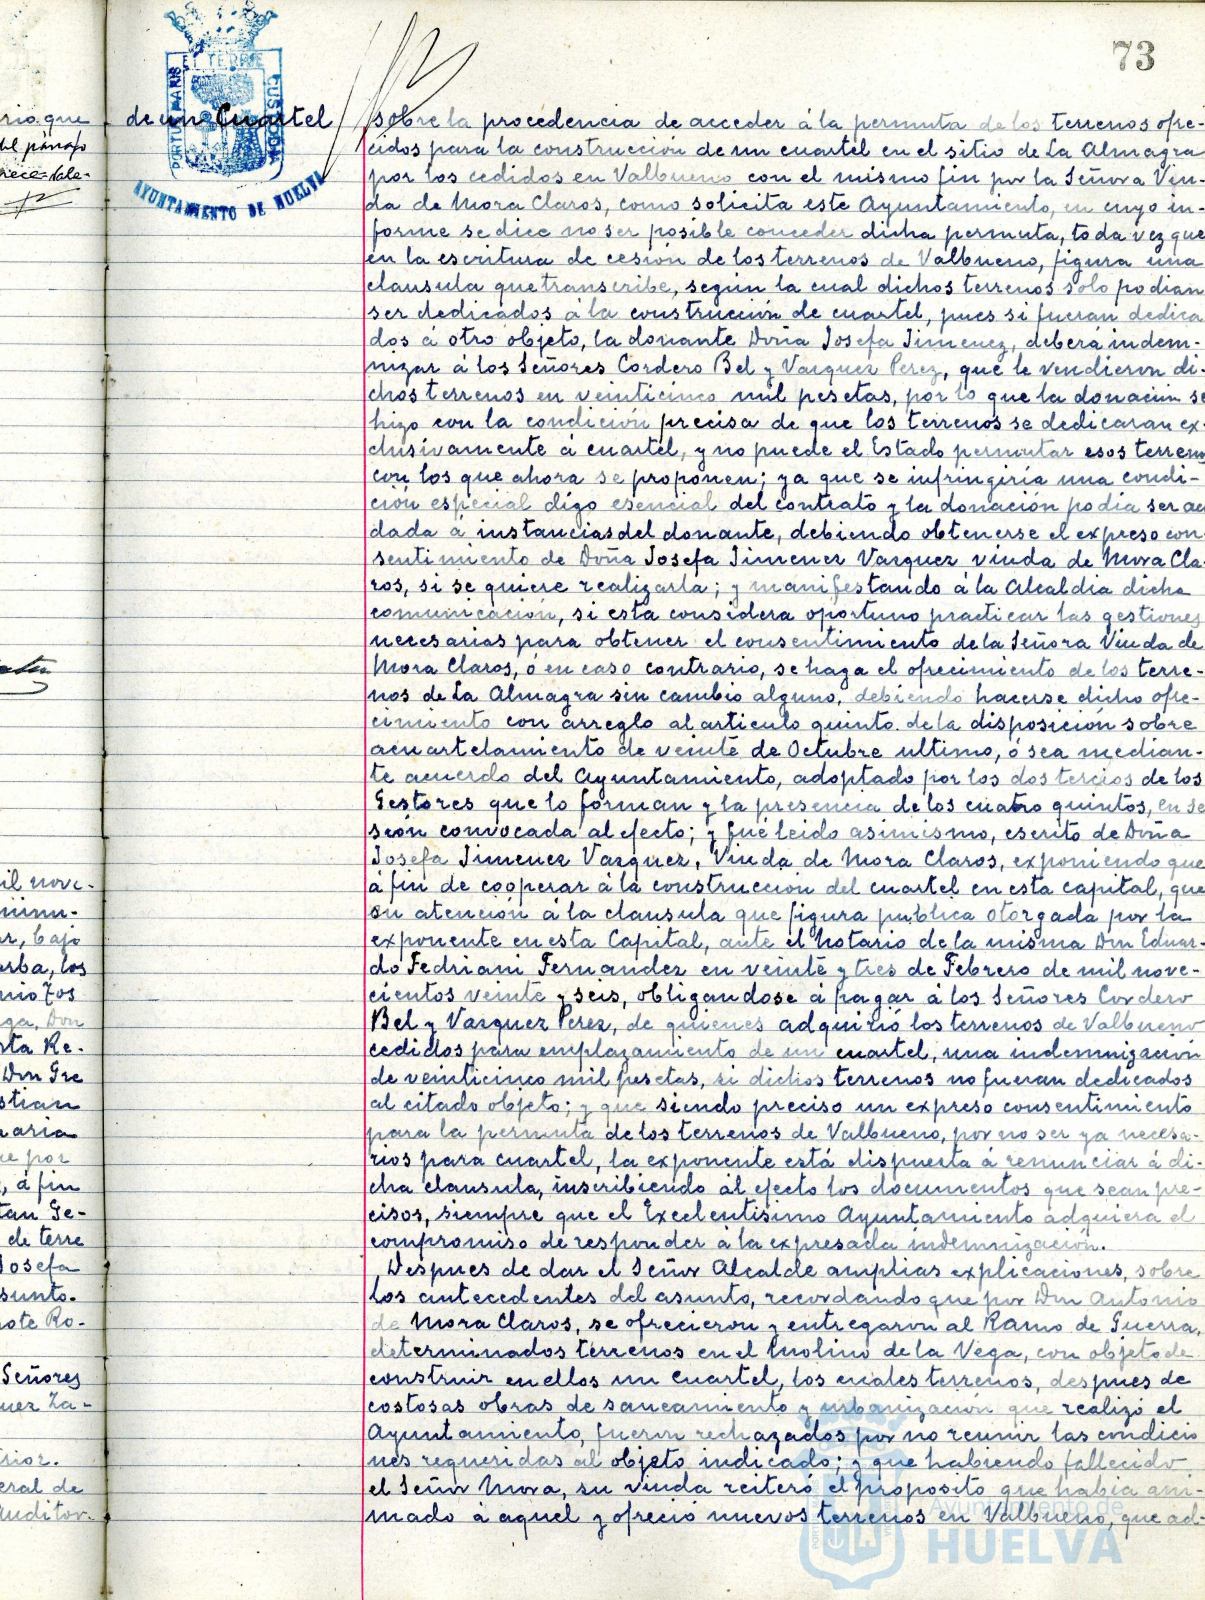 73
PORTUS MARIS
ET TERRE
CUSTODIA
AYUNTAMIENTO DE HUELVA
de un Cuartel
sobre la procedencia de acceder á la permuta de los terrenos ofre-
cidos para la construcción de un cuartel en el sitio de La Almagra
por los cedidos en Valbueno con el mismo fin por la Señora Viu-
da de Mora Claros, como solicita este Ayuntamiento, en cuyo in-
forme se dice no ser posible conceder dicha permuta, toda vez que
en la escritura de cesión de los terrenos de Valbueno, figura una
clausula que transcribe, según la cual dichos terrenos solo podian
ser dedicados á la construcción de cuartel, pues si fueran dedica
dos á otro objeto, la donante Doña Josefa Jimenez, deberá indem-
nizar á los Señores Cordero Bel y Vazquez Perez, que le vendieron di-
chos terrenos en veinticinco mil pesetas, por lo que la donación se
hizo con la condición precisa de que los terrenos se dedicaran ex-
clusivamente á cuartel, y no puede el Estado permutar esos terrenos
con los que ahora se proponen; ya que se infringiría una condi-
ción especial digo esencial del contrato y la donación podia ser an
dada á instancias del donante, debiendo obtenerse el expreso con-
sentimiento de Doña Josefa Jimenez Vazquez viuda de Mora Cla-
ros, si se quiere realizarla; y manifestando á la Alcaldia dicha
comunicación, si esta considera oportuno practicar las gestiones
necesarias para obtener el consentimiento de la Señora Viuda de
Mora Claros, o en caso contrario, se haga el ofrecimiento de los terre-
nos de La Almagra sin cambio alguno, debiendo hacerse dicho ofre-
cimiento con arreglo al articulo quinto de la disposición sobre
acuartelamiento de veinte de Octubre ultimo, ó sea median-
te acuerdo del Ayuntamiento, adoptado por los dos tercios de los
Gestores que lo forman y la presencia de los cuatro quintos, en se
sión convocada al efecto; y fué leido asimismo, escrito de Doña
Josefa Jimenez Vazquez, Viuda de Mora Claros, exponiendo que
á fin de cooperar á la construcción del cuartel en esta capital, que
en atención á la clausula que figura publica otorgada por la
exponente en esta Capital, ante el Notario de la misma Don Eduar-
do Fedriani Fernandez en veinte y tres de Febrero de mil nove-
cientos veinte y seis, obligandose á pagar á los Señores Cordero
Bel y Vazquez Perez, de quienes adquirió los terrenos de Valbueno
cedidos para emplazamiento de un cuartel, una indemnización
de veinticinco mil pesetas, si dichos terrenos no fueran dedicados
al citado objeto; y que siendo preciso un expreso consentimiento
para la permuta de los terrenos de Valbueno, por no ser ya necesa-
rios para cuartel, la exponente está dispuesta á renunciar á di-
cha clausula, inscribiendo al efecto los documentos que sean pre-
cisos, siempre que el Excelentisimo Ayuntamiento adquiera el
compromiso de responder á la expresada indemnización.
Despues de dar el Señor Alcalde amplias explicaciones, sobre
los antecedentes del asunto, recordando que por Don Antonio
de Mora Claros, se ofrecieron y entregaron al Ramo de Guerra,
determinados terrenos en el Molino de la Vega, con objeto de
construir en ellos un cuartel, los cuales terrenos, despues de
costosas obras de saneamiento y urbanización que realizó el
Ayuntamiento, fueron rechazados por no reunir las condicio
nes requeridas al objeto indicado; y que habiendo fallecido
el Señor Mora, su viuda reiteró el proposito que habia ani-
mado á aquel y ofreció nuevos terrenos en Valbueno, que ad-
Ayuntamiento de
HUELVA
rio que
del párrafo
il nove-
ar, bajo
arba, los
Don
sta Re-
Don Gre
stian
naria
ue por
, á fin
tan Ge-
de terre
Josefa
sunto.
ote Ro-
Señores
uez Za-
rior.
eral de
Auditor-